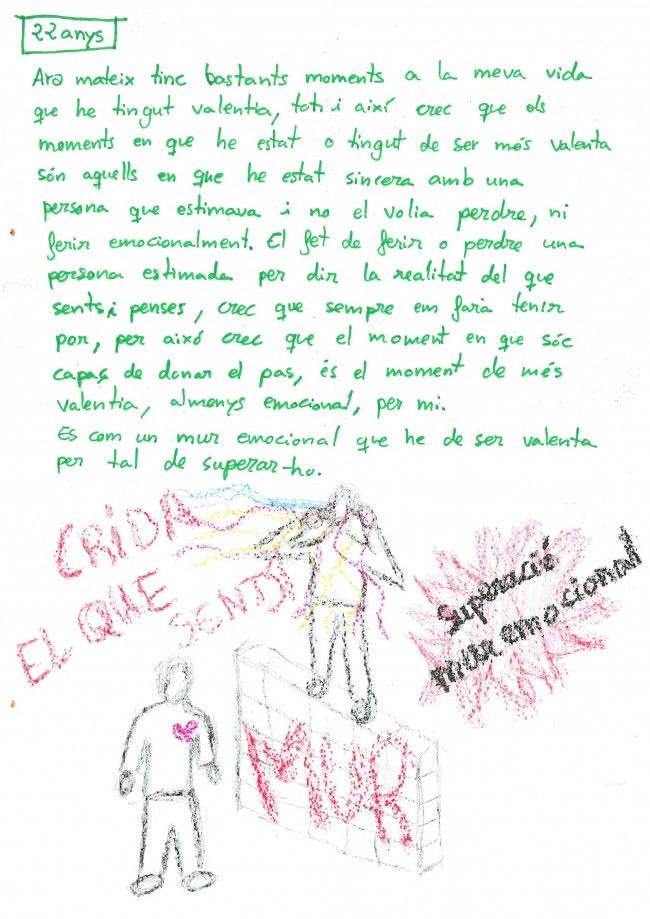 22 anys
Ara mateix tinc bastants moments a la meva vida
que he tingut valentia, tot i així crec que els
moments en que he estat o tingut de ser més valenta
són aquells en que he estat sincera amb una
persona que estimava i no el volia perdre, ni
ferir emocionalment. El fet de ferir o perdre una
persona estimada per dir la realitat del que
sents i penses, crec que sempre em farà tenir
por, per aixó crec que el moment en que sóc
capaç de donar el pas, és el moment de més
valentia, almenys emocional, per mi.
Es com un mur emocional que he de ser valenta
per tal de superar-ho.
CRIDA
EL QUE
SENTS
Superació
mur emocional
MUR